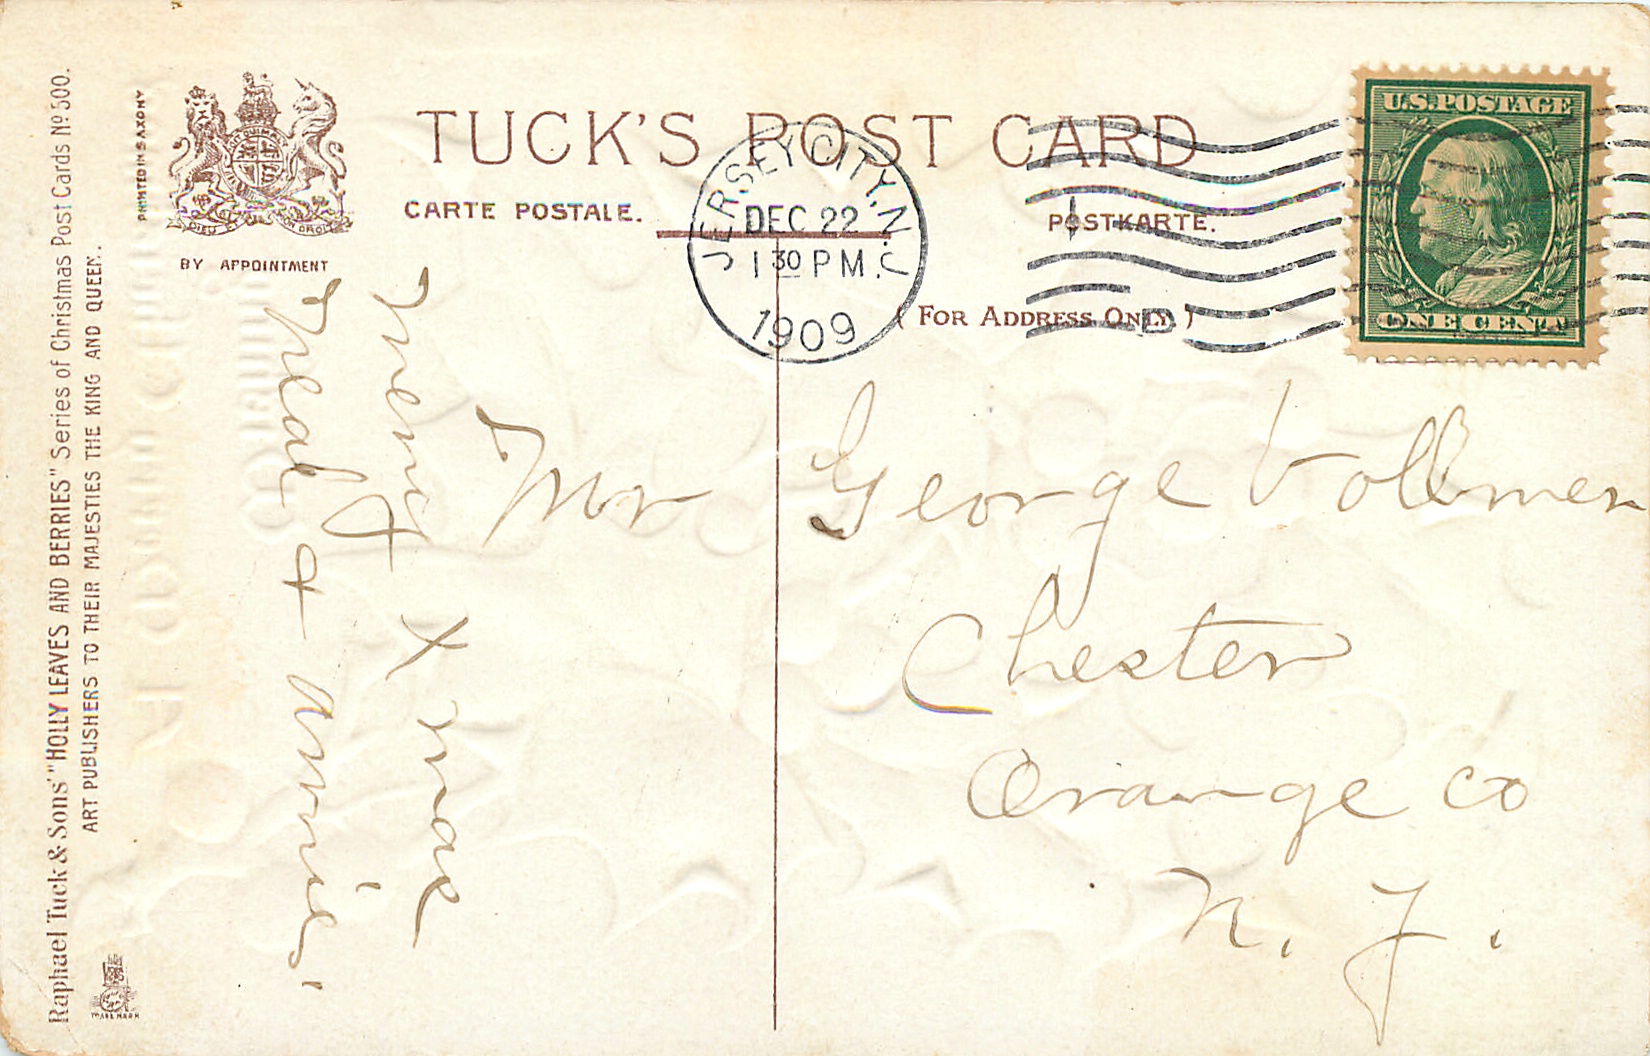 Raphael Tuck & Sons' "HOLLY LEAVES AND BERRIES" Series of Christmas Post Cards No 500.
ART PUBLISHERS TO THEIR MAJESTIES THE KING AND QUEEN.
PRINTED IN SAXONY
DIEU ET MON DROIT
BY APPOINTMENT
TRADE MARK
TUCK'S POST CARD
CARTE POSTALE.
POSTKARTE.
(FOR ADDRESS ONLY.)
JERSEY CITY, N.J.
DEC 22
1 30 PM
1909
U.S. POSTAGE
ONE CENT
Merry Xmas
Neal & Annie.
Mr George Vollmer
Chester
Orange Co
N. J.